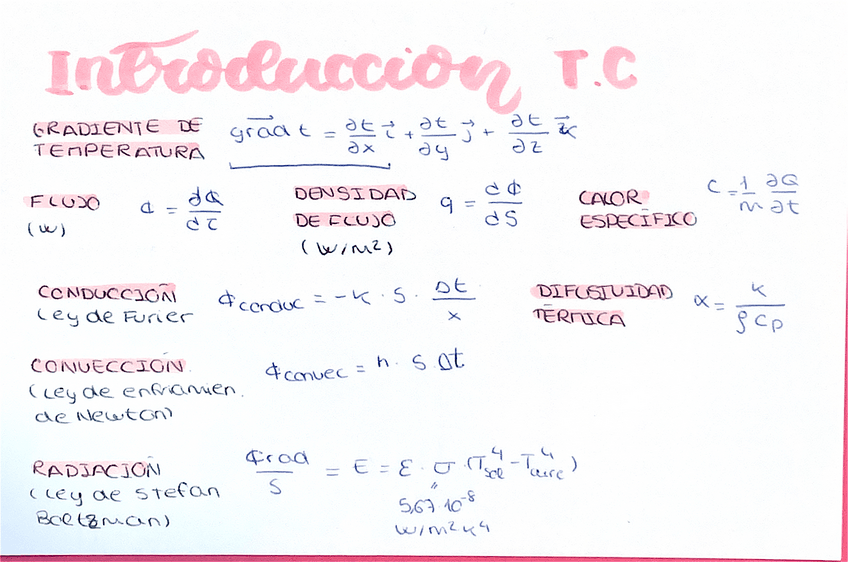 Introduccion T.C
GRADIENTE DE TEMPERATURA grad t = ∂t/∂x i + ∂t/∂y j + ∂t/∂z k
FLUJO (W) φ = dQ/dτ
DENSIDAD DE FLUJO (W/m²) q = dφ/dS
CALOR ESPECÍFICO c = 1/m ∂Q/∂t
CONDUCCIÓN Ley de Furier φconduc = -k · S · Δt/x
DIFUSIVIDAD TÉRMICA α = k/ρCp
CONVECCIÓN (Ley de enfriamien. de Newton) φconvec = h · S Δt
RADIACIÓN (Ley de Stefan Boltzman) φrad/S = E = ε · σ · (T⁴ - T⁴aire)
5,67 10⁻⁸
W/m²K⁴